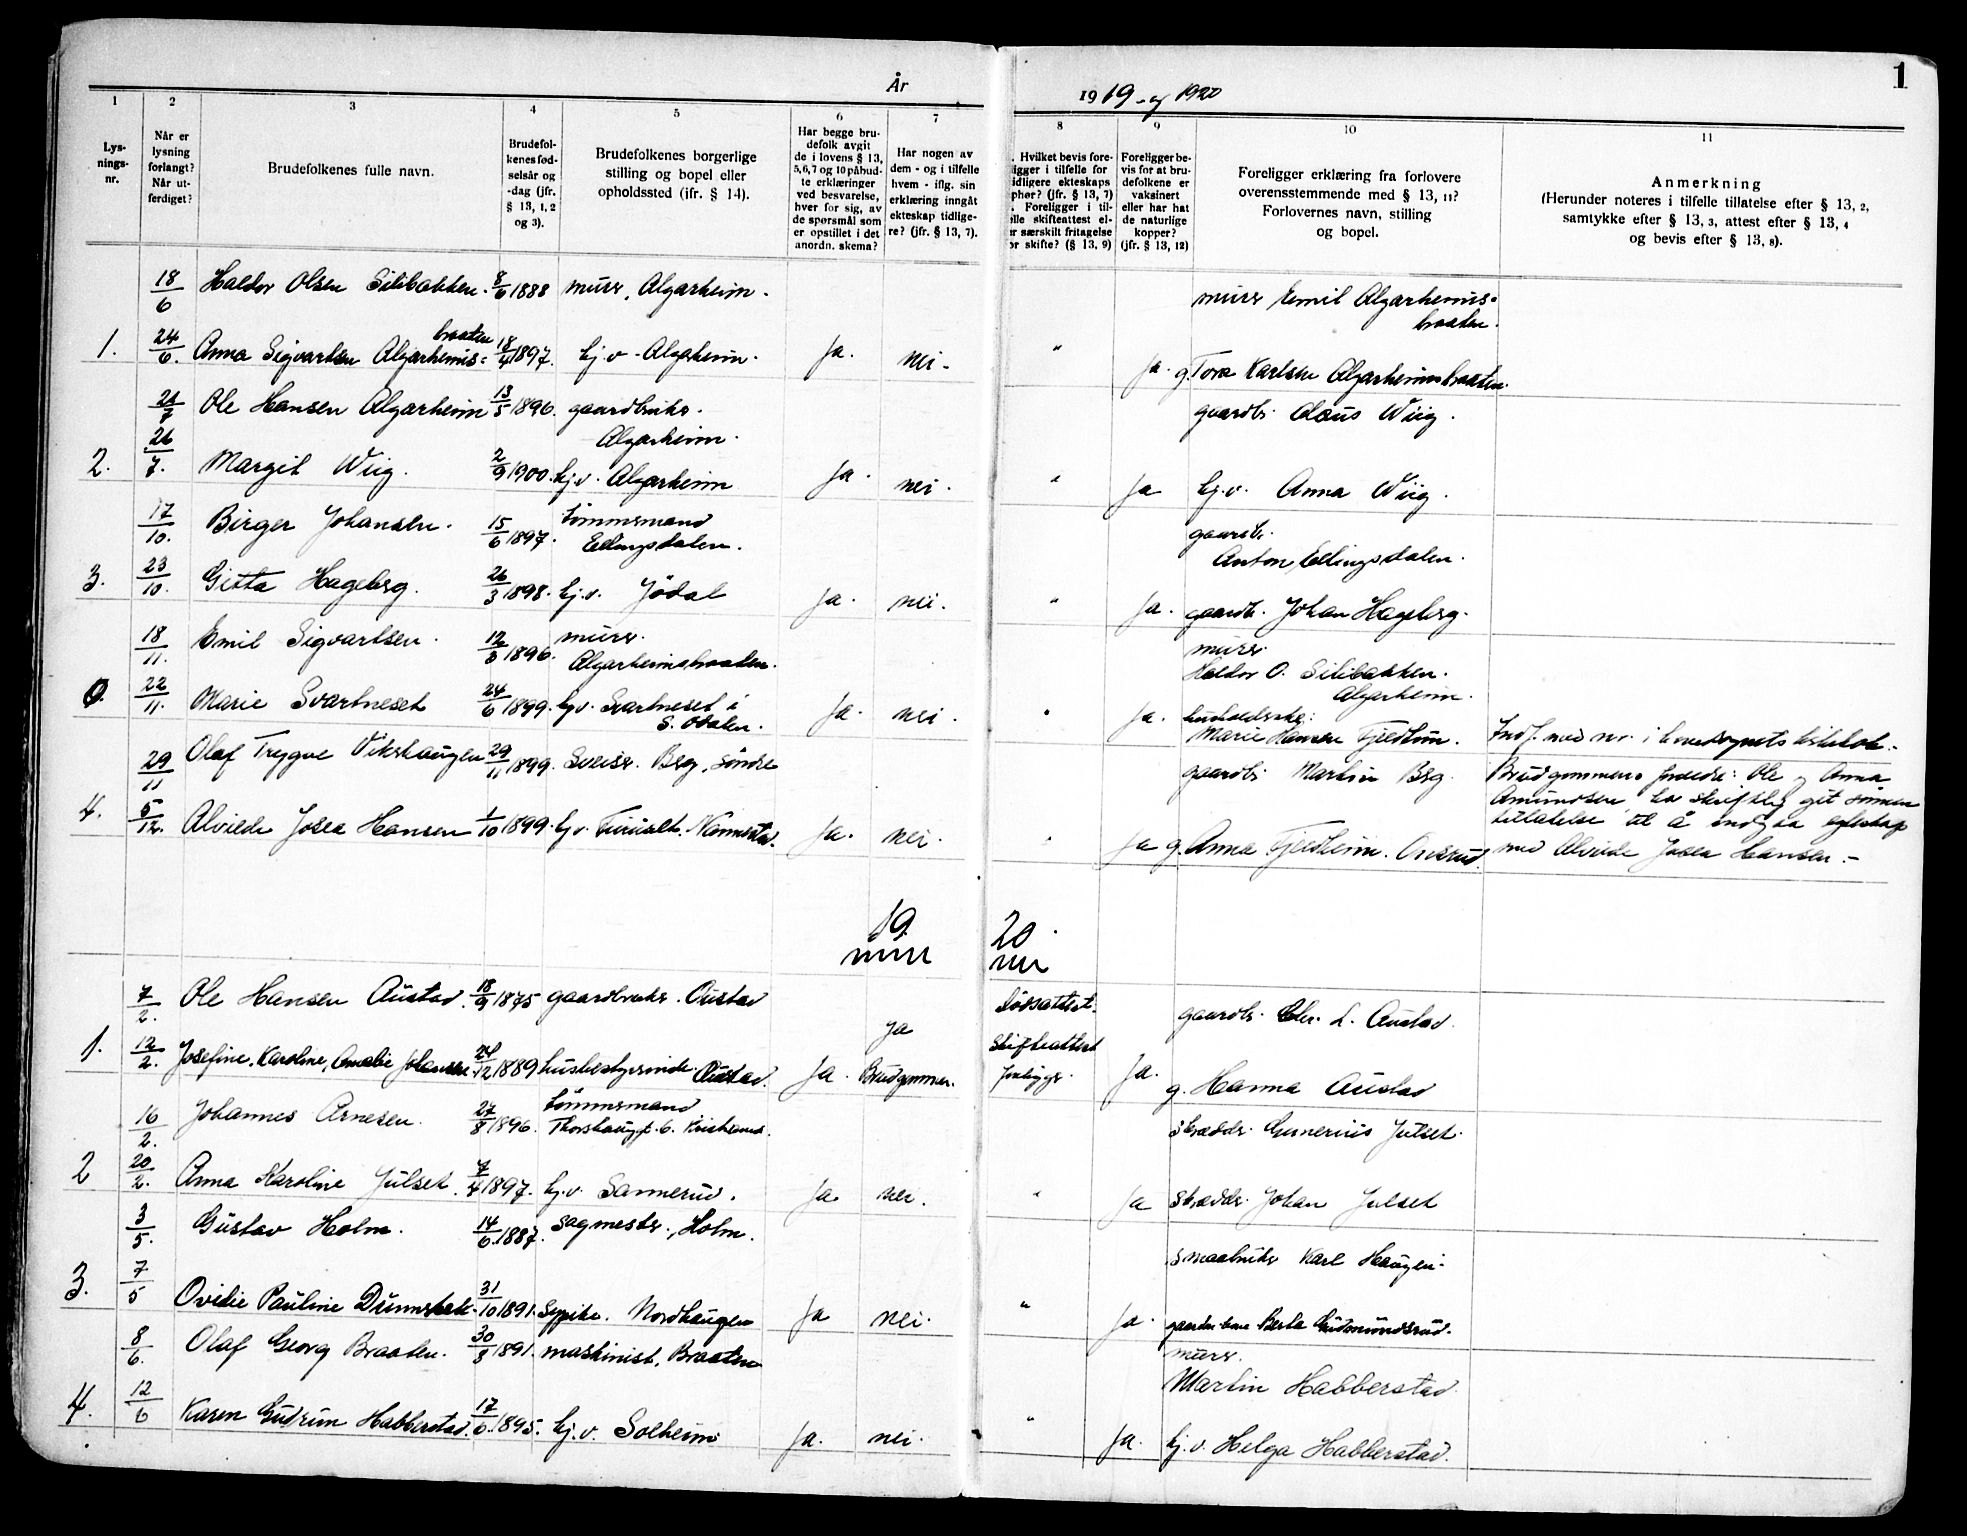 År
1919 og 1920
1
1 2 3 4 5 6 7 8 9 10 11
Lys-
nings-
nr.
Når er
lysning
forlangt?
Når ut-
ferdiget?
Brudefolkenes fulle navn.
Brudefol-
kenes fød-
selsår og
-dag (jfr.
§ 13, 1, 2
og 3).
Brudefolkenes borgerlige
stilling og bopel eller
opholdssted (jfr. § 14).
Har begge bru-
defolk avgit
de i lovens § 13,
5, 6, 7 og 10 påbud-
te erklæringer
ved besvarelse,
hver for sig, av
de spørsmål som
er opstillet i det
anordn. skema?
Har nogen av
dem - og i tilfelle
hvem - iflg. sin
erklæring inngåt
ekteskap tidlige-
re? (jfr. § 13, 7).
. Hvilket bevis fore-
ligger i tilfelle for
idligere ekteskaps
phør? (jfr. § 13, 7)
. Foreligger i til-
elle skifteattest el-
er særskilt fritagelse
or skifte? (§ 13, 9)
Foreligger be-
vis for at bru-
defolkene er
vaksinert
eller har hat
de naturlige
kopper?
(jfr. § 13, 12)
Foreligger erklæring fra forlovere
overensstemmende med § 13, 11?
Forlovernes navn, stilling
og bopel.
Anmerkning
(Herunder noteres i tilfelle tillatelse efter § 13, 2,
samtykke efter § 13, 3, attest efter § 13, 4
og bevis efter § 13, 8).
18/6 Haldor Olsen Silibakken. 8/6 1888 murer, Algarheim. murer Emil Algarheims-
braaten.
1. 24/6. Anna Sigvartsen Algarheims=
braaten 18/4 1897. hj.v - Algarheim. Ja. nei. " Ja. g. Tora Karlsen Algarheimsbraaten.
21/7 Ole Hansen Algarheim 13/5 1896. gaardbruker.
Algarheim. gaardbr. Claus Wiig.
2. 26/7. Margit Wiig. 2/9 1900. hj.v. Algarheim Ja. nei. " Ja hj.v. Anna Wiig.
17/10. Birger Johansen. 15/6 1897. tømmermand
Ellingsdalen. gaardbr.
Anton Ellingsdalen.
3. 23/10. Gitta Hageberg. 26/3 1898. hj.v. Jødal Ja. nei. " Ja. gaardb. Johan Hageberg.
18/11. Emil Sigvartsen. 12/8 1896. murer.
Algarheimsbraaten. murer.
Haldor O. Silibakken.
Algarheim.
0. 22/11. Marie Svartneset 24/6 1899. hj.v. Svartneset i
S. Odalen. Ja. nei. " Ja. husholderske:
Marie Hansen Fjeldtun. Indf. med nr. i hovedsognets
29/11 Olaf Trygve Vikshaugen 29/11 1899. Sveiser. Berg, søndre gaardb. Martin Berg. Brudgommens foreldre: Ole og Anna
Amundsen har skriftlig git sønnen
tillatelse til å indgaa egteskap
4. 5/12. Alvilde Josea Hansen 1/10 1899. hj.v. Furuset. Nannestad. Ja. nei. " Ja g. Anna Fjeldheim. Onsrud. med Alvilde Josea Hansen.-
19 20.
7/2. Ole Hansen Austad. 18/9 1875 gaardbruker. Austad Dødsattest. gaardb. Chr. L. Austad.
1. 12/2. Josefine, Karoline, Amalie Johansen. 24/12 1889 husbestyrerinde. Austad. Ja. Ja
Brudgommen. Skifteattest
foreligger. Ja. g. Hanna Austad
16/2. Johannes Arnesen. 27/8 1896. tømmermand
Thorshauggt. 6. Kristiania. skrædder. Gunerius Julset.
2 20/2. Anna Karoline Julset. 7/4 1897. hj.v. Sannerud. Ja. nei. " Ja skrædder. Johan Julset
3/5. Gustav Holm. 14/6. 1887. sagmester, Holm. smaabruker Karl Haugen.
3. 7/5 Ovidie Pauline 31/10 1891. sypike. Nordhaugen Ja nei. " Ja. Berta Gudmundsrud.
8/6. Olaf Georg Braaten. 30/8 1891. maskinist. Braaten murer.
Martin Habberstad.
4. 12/6 Karen Gudrun Habberstad. 17/6. 1895. hj.v. Solheim Ja. nei. " Ja. hj.v. Helga Habberstad.